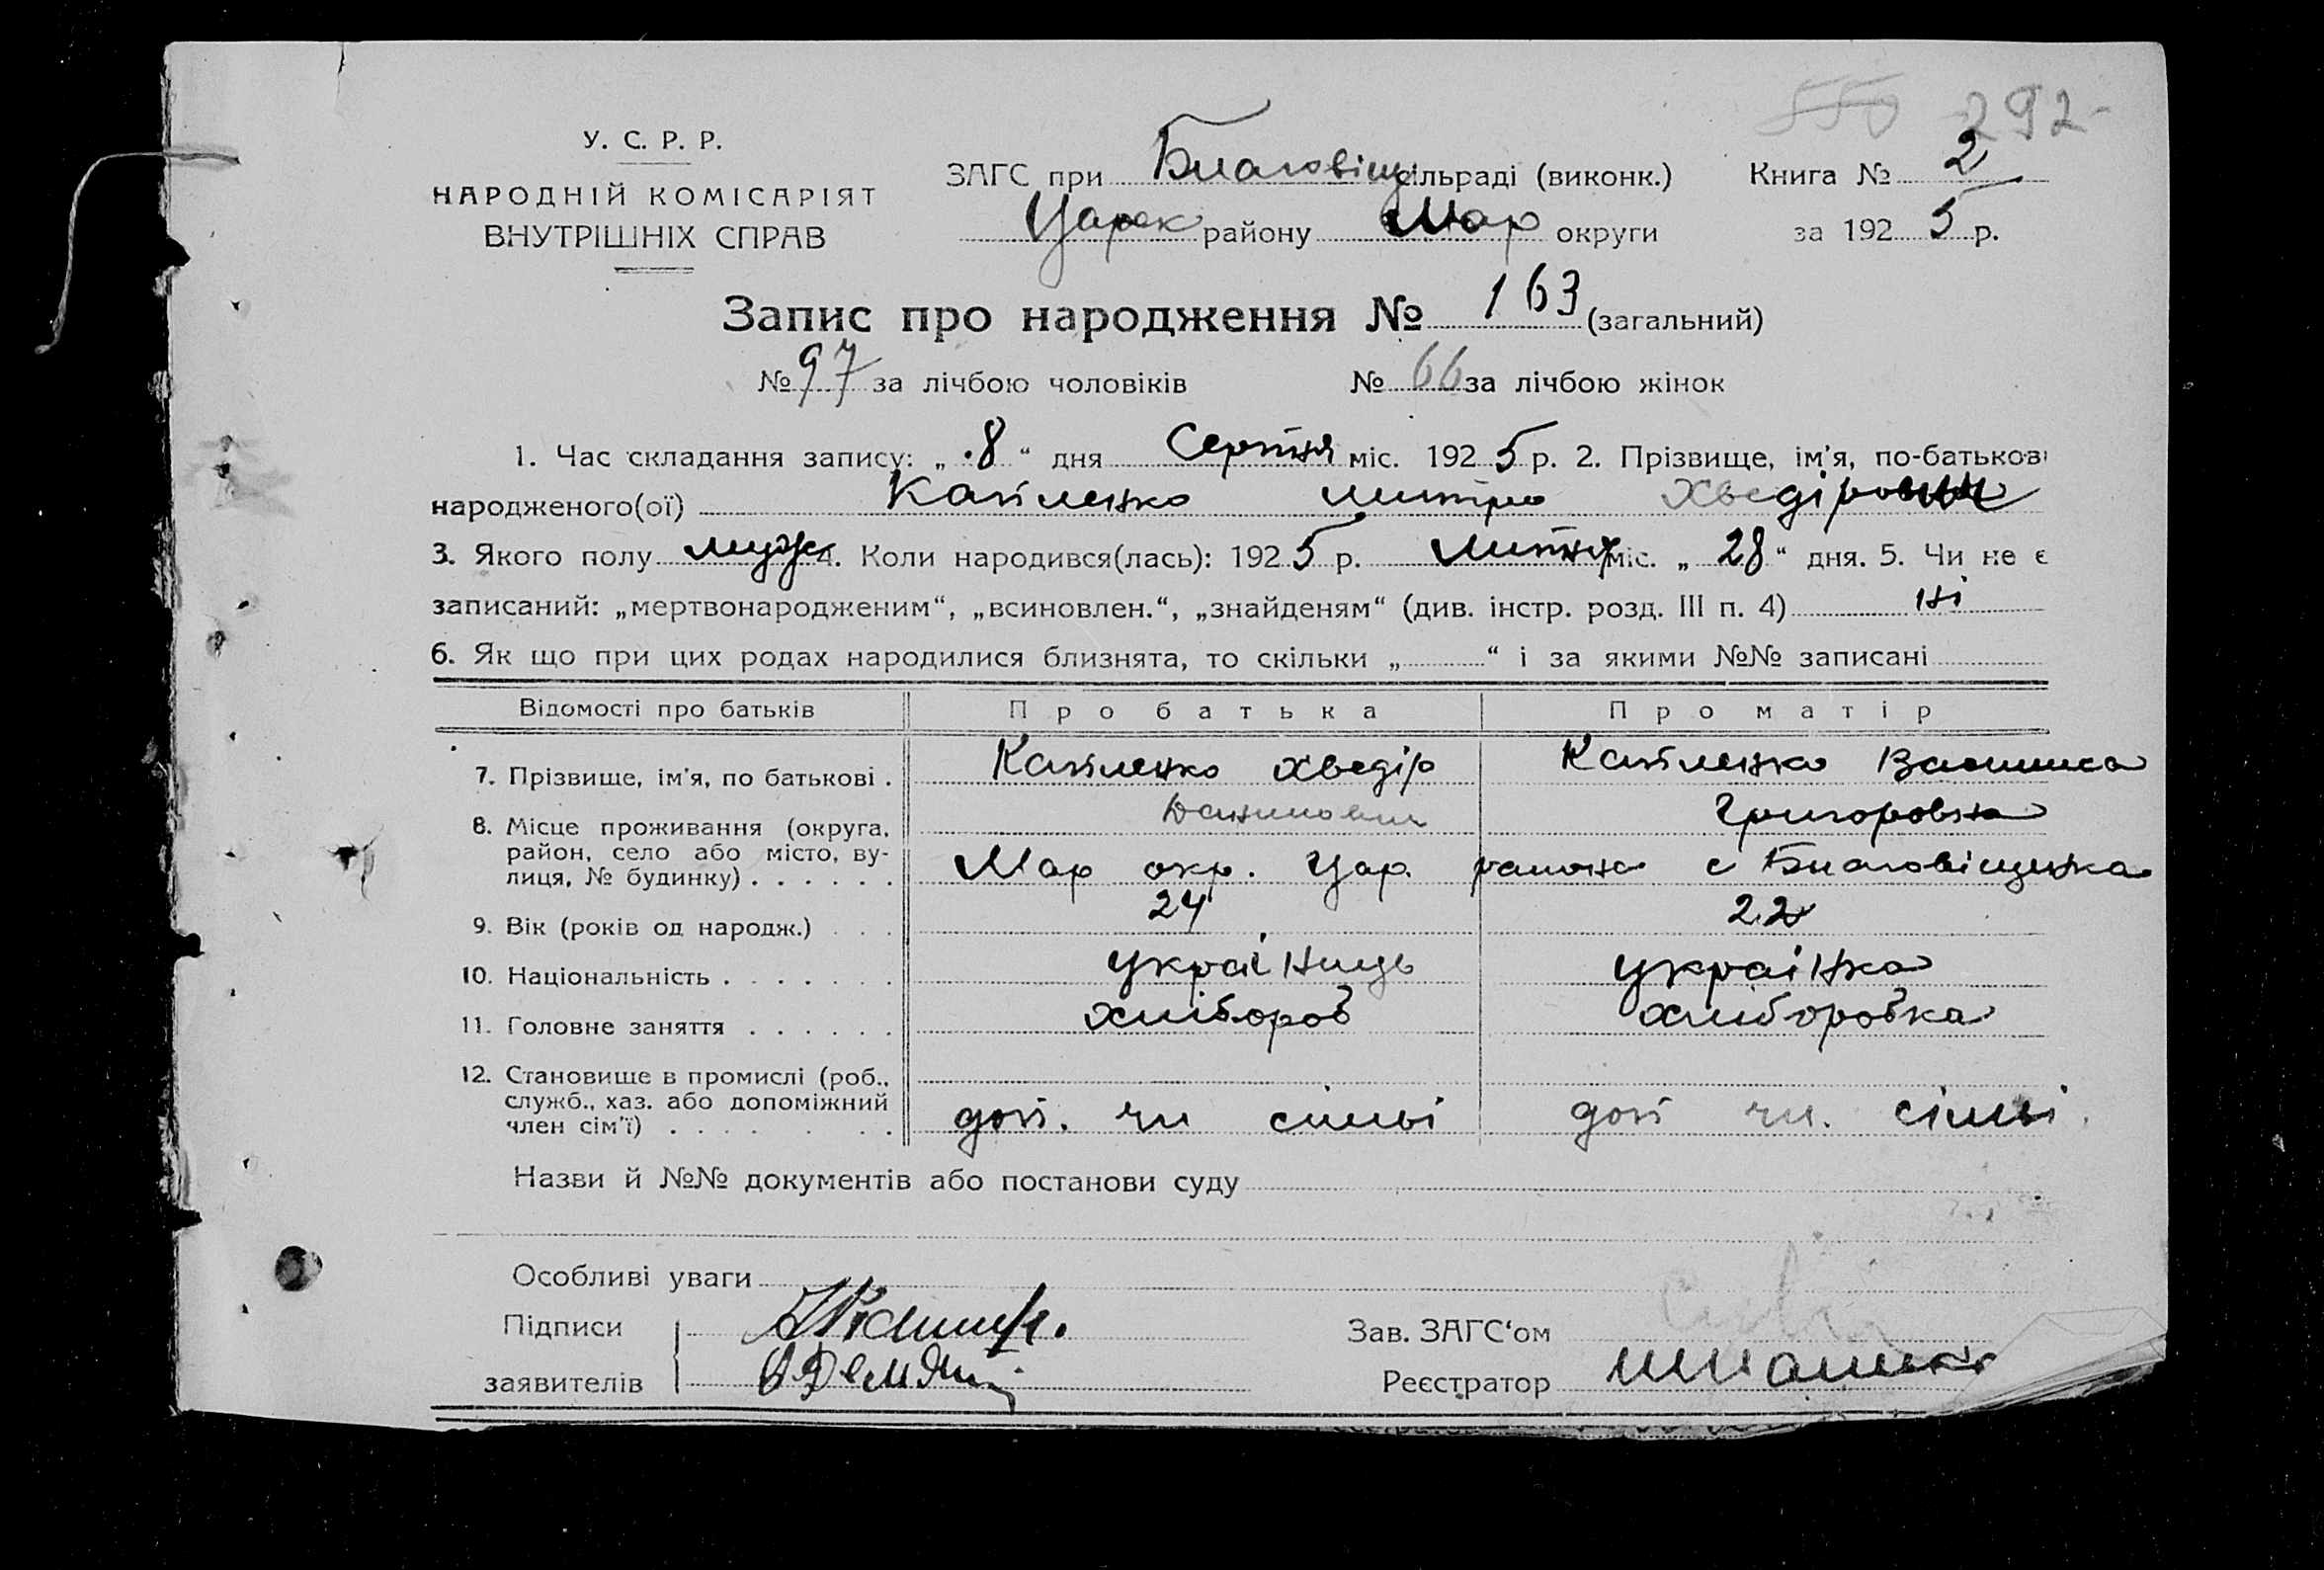 550 292-
У. С. Р. Р.
НАРОДНІЙ КОМІСАРІЯТ
ВНУТРІШНІХ СПРАВ
ЗАГС при Благовіщ сільраді (виконк.) Книга № 2
Царек району Мар округи за 1925 р.
Запис про народження № 163 (загальний)
№ 97 за лічбою чоловіків № 66 за лічбою жінок
1. Час складання запису: „ 8 “ дня Серпня міс. 1925 р. 2. Прізвище, ім'я, по-батькові
народженого(ої) Хведірович
3. Якого полу муж 4. Коли народився(лась): 1925 р. Липня міс. „ 28 “ дня. 5. Чи не є
записаний: „мертвонародженим“, „всиновлен.“, „знайденям“ (див. інстр. розд. III п. 4) ні
6. Як що при цих родах народилися близнята, то скільки „ “ і за якими №№ записані
Відомості про батьків Про батька Про матір
7. Прізвище, ім'я, по батькові . Хведір
Данилович Григоровна
8. Місце проживання (округа, район, село або місто, вулиця, № будинку) . . . . . . Мар окр. Цар. района с Благовіщенка
9. Вік (років од народж.) . . . 24 22
10. Національність . . . . . . . українець українка
11. Головне заняття . . . . . . хлібороб хлібо робка
12. Становище в промислі (роб., служб., хаз. або допоміжний член сім'ї) . . . . . . . доп. чл сімьі доп чл. сімьі
Назви й №№ документів або постанови суду
Особливі уваги
Підписи Зав. ЗАГС'ом
заявителів Реєстратор